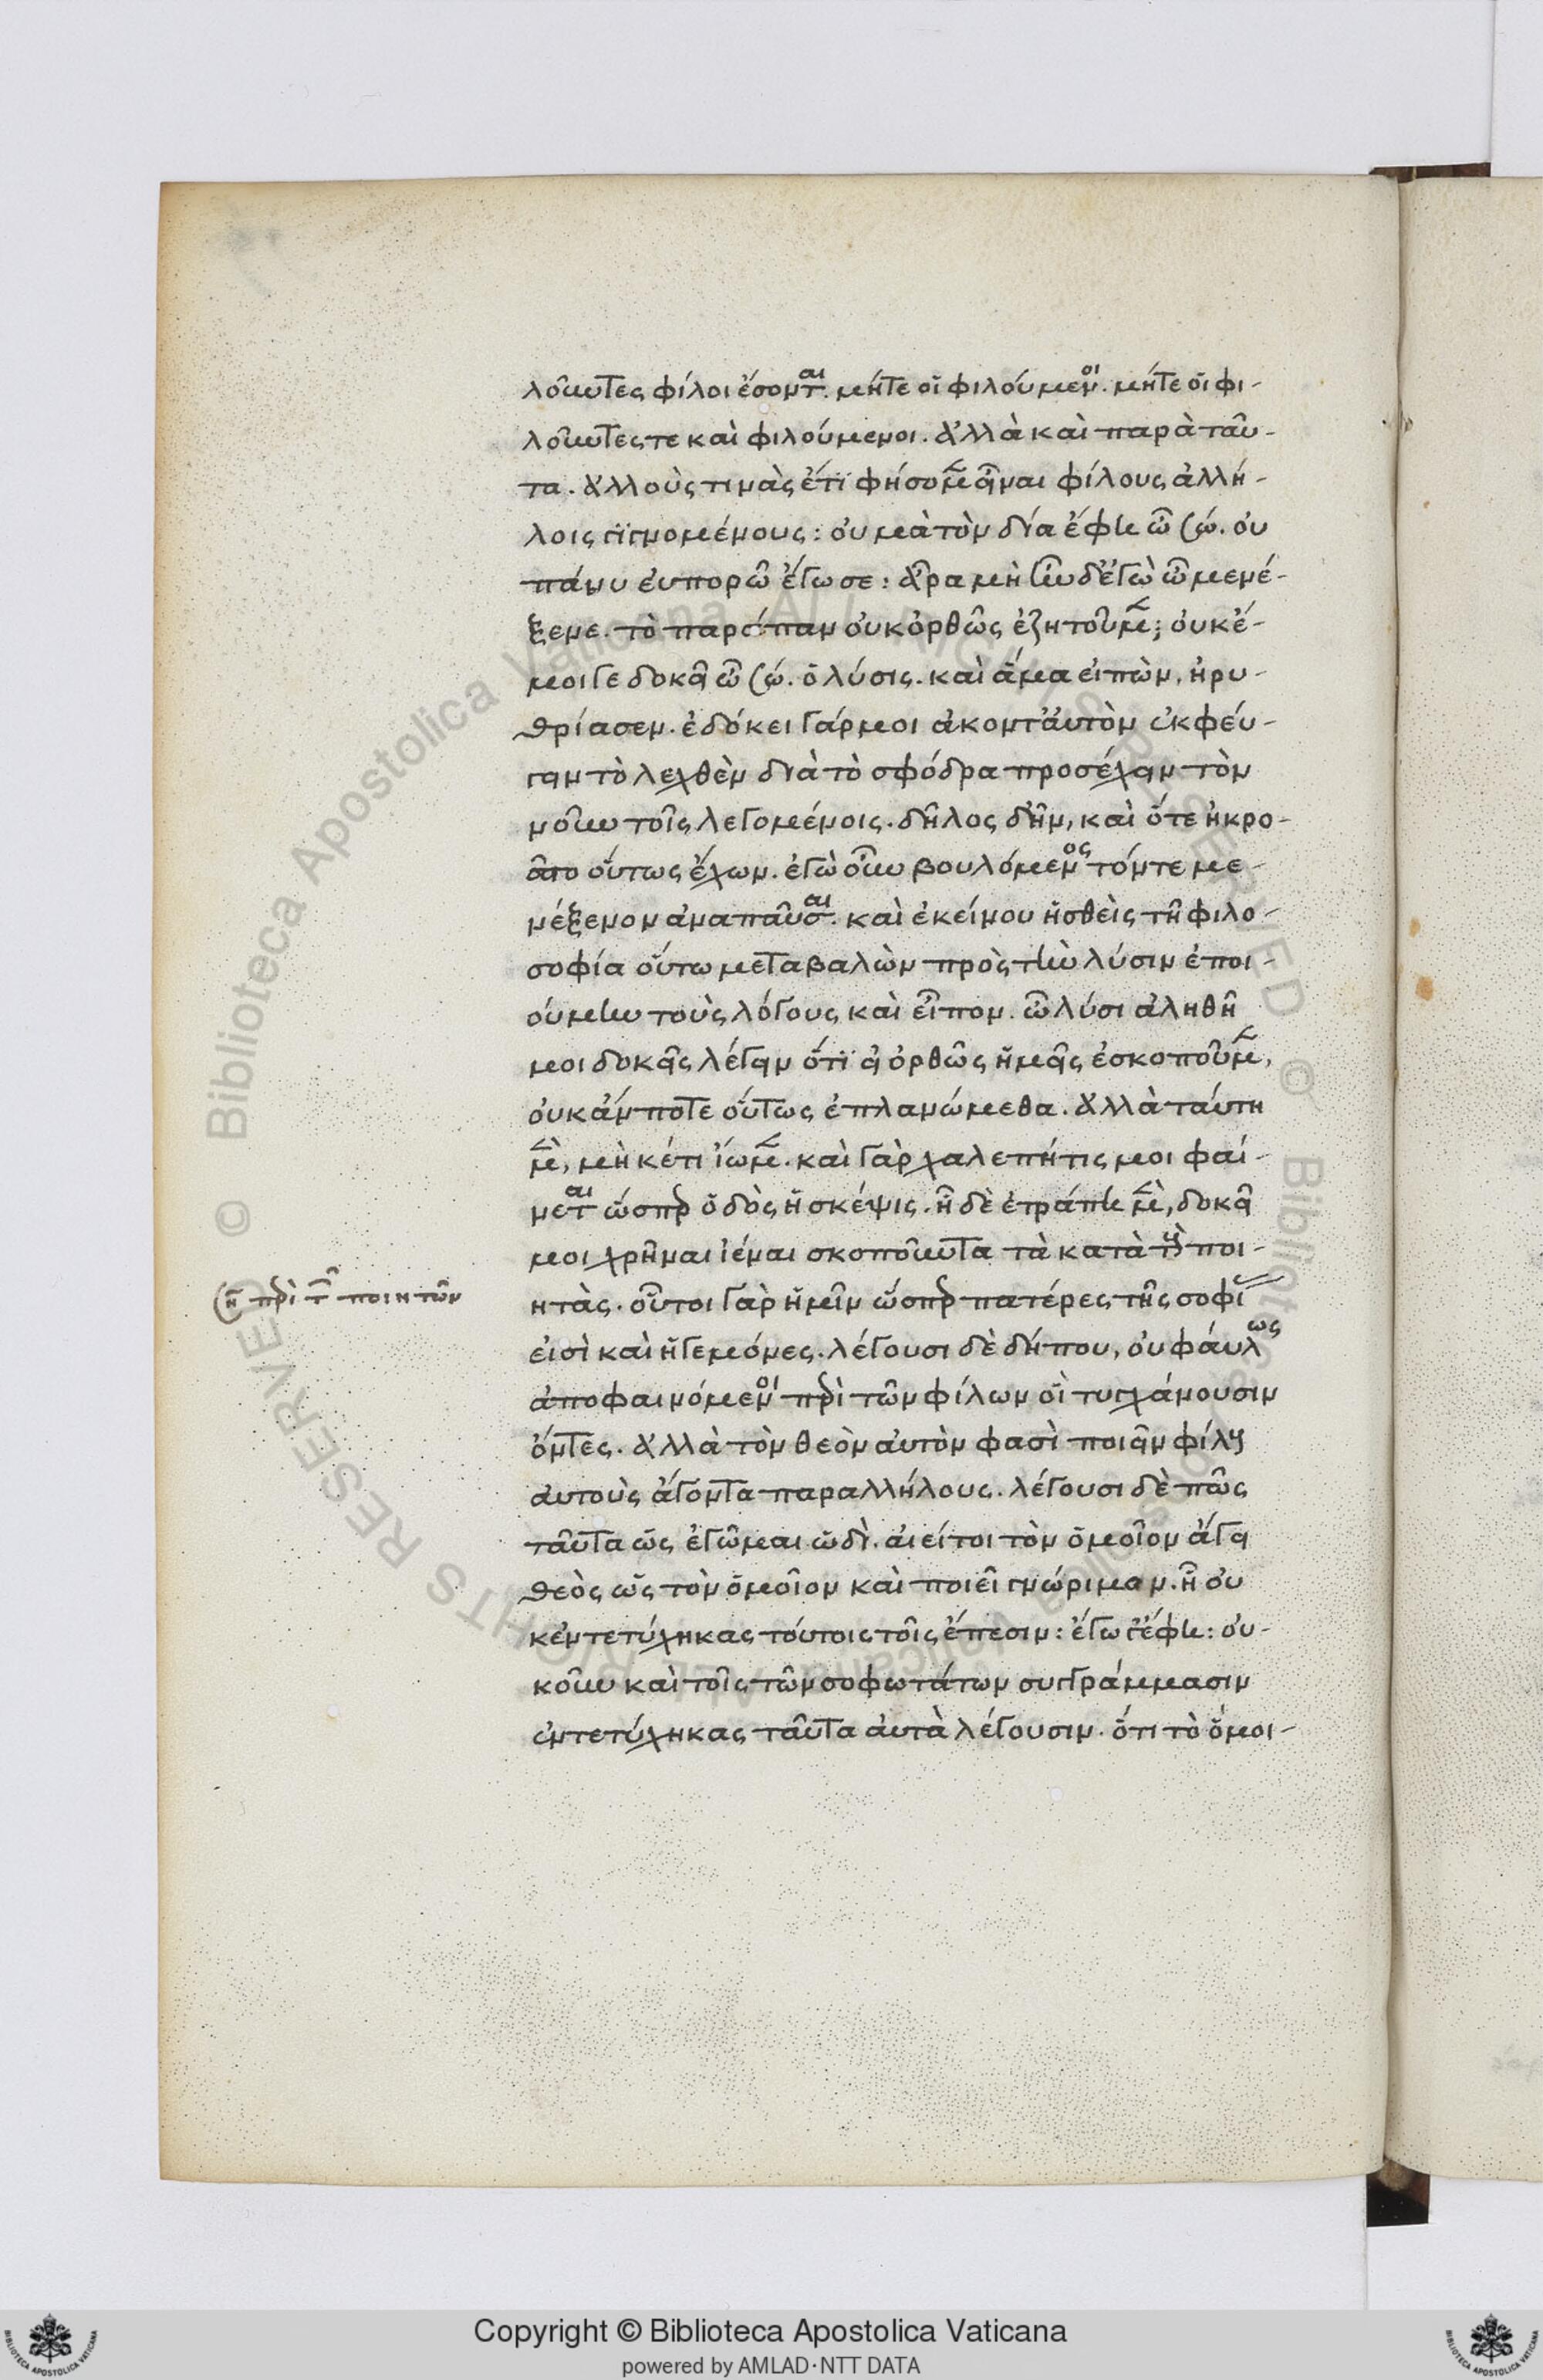 λοῦντες φίλοι ἔσονται. μήτε οἱ φιλούμενοι. μήτε οἱ φι-
λοῦντές τε καὶ φιλούμενοι. ἀλλὰ καὶ παρὰ ταῦ-
τα. ἄλλους τινὰς ἔτι φήσομεν εἶναι φίλους ἀλλή-
λοις γιγνομένους: οὐ μὰ τὸν δία ἔφην ὦ σώ. οὐ
πάνυ εὐπορῶ ἔγωγε: ἆρα μὴν οὐδ' ἐγὼ ὦ μενέ-
ξενε. τὸ παράπαν οὐκ ὀρθῶς ἐζητοῦμεν; οὐκ ἔ-
μοιγε δοκεῖ ὦ σώ. ὁ λύσις. καὶ ἅμα εἰπὼν, ἠρυ-
θρίασεν. ἐδόκει γάρ μοι ἄκοντ' αὐτὸν ἐκφεύ-
γειν τὸ λεχθὲν διὰ τὸ σφόδρα προσέχειν τὸν
νοῦν τοῖς λεγομένοις. δῆλος δ' ἦν, καὶ ὅτε ἠκρο-
ᾶτο οὕτως ἔχων. ἐγὼ οὖν βουλόμενος τόν τε με-
νέξενον ἀναπαῦσαι. καὶ ἐκείνου ἡσθεὶς τῇ φιλο-
σοφία οὕτω μεταβαλὼν πρὸς τὴν λύσιν ἐποι-
ούμην τοὺς λόγους καὶ εἶπον. ὦ λύσι ἀληθῆ
μοι δοκεῖς λέγειν ὅτι εἰ ὀρθῶς ἡμεῖς ἐσκοποῦμεν,
οὐκ ἄν ποτε οὕτως ἐπλανώμεθα. ἀλλὰ ταύτη
μὲν, μηκέτι ἴωμεν. καὶ γὰρ χαλεπή τίς μοι φαί-
νεται ὥσπερ ὁδὸς ἡ σκέψις. ἧ δὲ ἐτράπην μὲν, δοκεῖ
μοι χρῆναι ἰέναι σκοποῦντα τὰ κατὰ τοὺς ποι-
ητάς. οὗτοι γὰρ ἡμῖν ὥσπερ πατέρες τῆς σοφίας
εἰσὶ καὶ ἡγεμόνες. λέγουσι δὲ δήπου, οὐ φαύλως
ἀποφαινόμενοι περὶ τῶν φίλων οἳ τυγχάνουσιν
ὄντες. ἀλλὰ τὸν θεὸν αὐτὸν φασὶ ποιεῖν φίλους
αὐτοὺς ἄγοντα παραλλήλους. λέγουσι δὲ πῶς
ταῦτα ὡς ἐγῶμαι ὡδί. αἰεί τοι τὸν ὁμοῖον ἄγει
θεὸς ὡς τὸν ὁμοῖον καὶ ποιεῖ γνώριμον. ἢ οὐ
κ ἐντετύχηκας τούτοις τοῖς ἔπεσιν: ἔγωγ' ἔφην: οὐ-
κοῦν καὶ τοῖς τῶν σοφωτάτων συγγράμμασιν
ἐντετύχηκας ταῦτα αὐτὰ λέγουσιν. ὅτι τὸ ὅμοι-
ση περὶ τῶν ποιητῶν
© Biblioteca Apostolica Vaticana ALL RIGHTS RESERVED
Copyright © Biblioteca Apostolica Vaticana
powered by AMLAD·NTT DATA